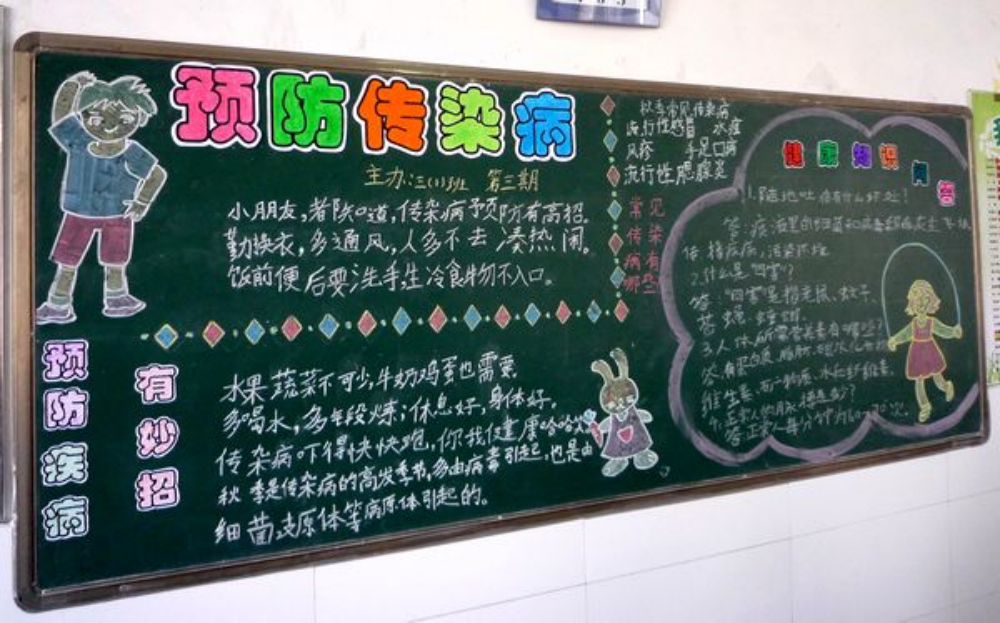 预防传染病
主办:三(1)班 第三期
小朋友,请听口道,传染病预防有高招。
勤换衣,多通风,人多不去凑热闹。
饭前便后要洗手,生冷食物不入口。
预防疾病
有妙招
水果蔬菜不可少,牛奶鸡蛋也需要
多喝水,多锻炼;休息好,身体好。
传染病吓得快快跑,你我健康哈哈笑
秋季是传染病的高发季节,多由病毒引起,也是由
细菌,支原体等病原体引起的。
秋季常见传染病
流行性感冒 水痘
风疹 手足口病
流行性腮腺炎
常见
传染
病有
哪些
健康知识问答
1.随地吐痰有什么坏处?
答:痰液里的细菌和病毒
传播疾病,污染环境
2.什么是"四害"?
答:"四害"是指老鼠、蚊子、
苍蝇、蟑螂。
3.人体所需营养素有哪些?
答:有蛋白质、脂肪、碳水化合物
维生素、矿物质、水和纤维素。
4.正常人的脉搏是多少?
答:正常人每分钟为60-100次。